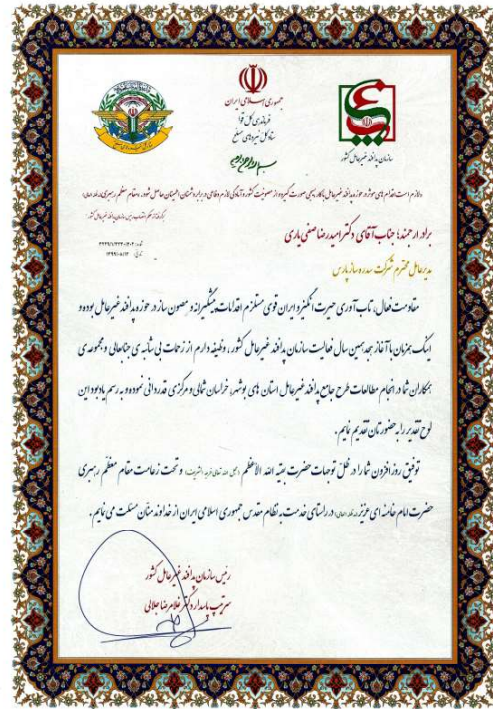 جمهوری اسلامی ایران
فرماندهی کل قوا
ستاد کل نیروهای مسلح
سازمان پدافند غیرعامل کشور
برادر ارجمند؛ جناب آقای دکتر امیدرضا صفی یاری
مدیرعامل محترم شرکت سدره ساز پارس
مقاومت فعال، تاب آوری حیرت انگیز و ایران قوی مستلزم اقدامات پیشگیرانه و مصون ساز در حوزه پدافند غیرعامل بوده و
اینک همزمان با آغاز هجدهمین سال فعالیت سازمان پدافند غیرعامل کشور، وظیفه دارم از زحمات بی شائبه ی جنابعالی و مجموعه ی
همکاران شما در انجام مطالعات طرح جامع پدافند غیرعامل استان های بوشهر، خراسان شمالی و مرکزی قدردانی نموده و به رسم یادبود این
لوح تقدیر را به حضورتان تقدیم نمایم.
توفیق روزافزون شما را در ظل توجهات حضرت بقیه الله الاعظم (عجل الله تعالی فرجه الشریف) و تحت زعامت مقام معظم رهبری
حضرت امام خامنه ای عزیز (مدظله العالی) در راستای خدمت به نظام مقدس جمهوری اسلامی ایران از خداوند منان مسئلت می نمایم.
رئیس سازمان پدافند غیرعامل کشور
سرتیپ پاسدار دکتر غلامرضا جلالی